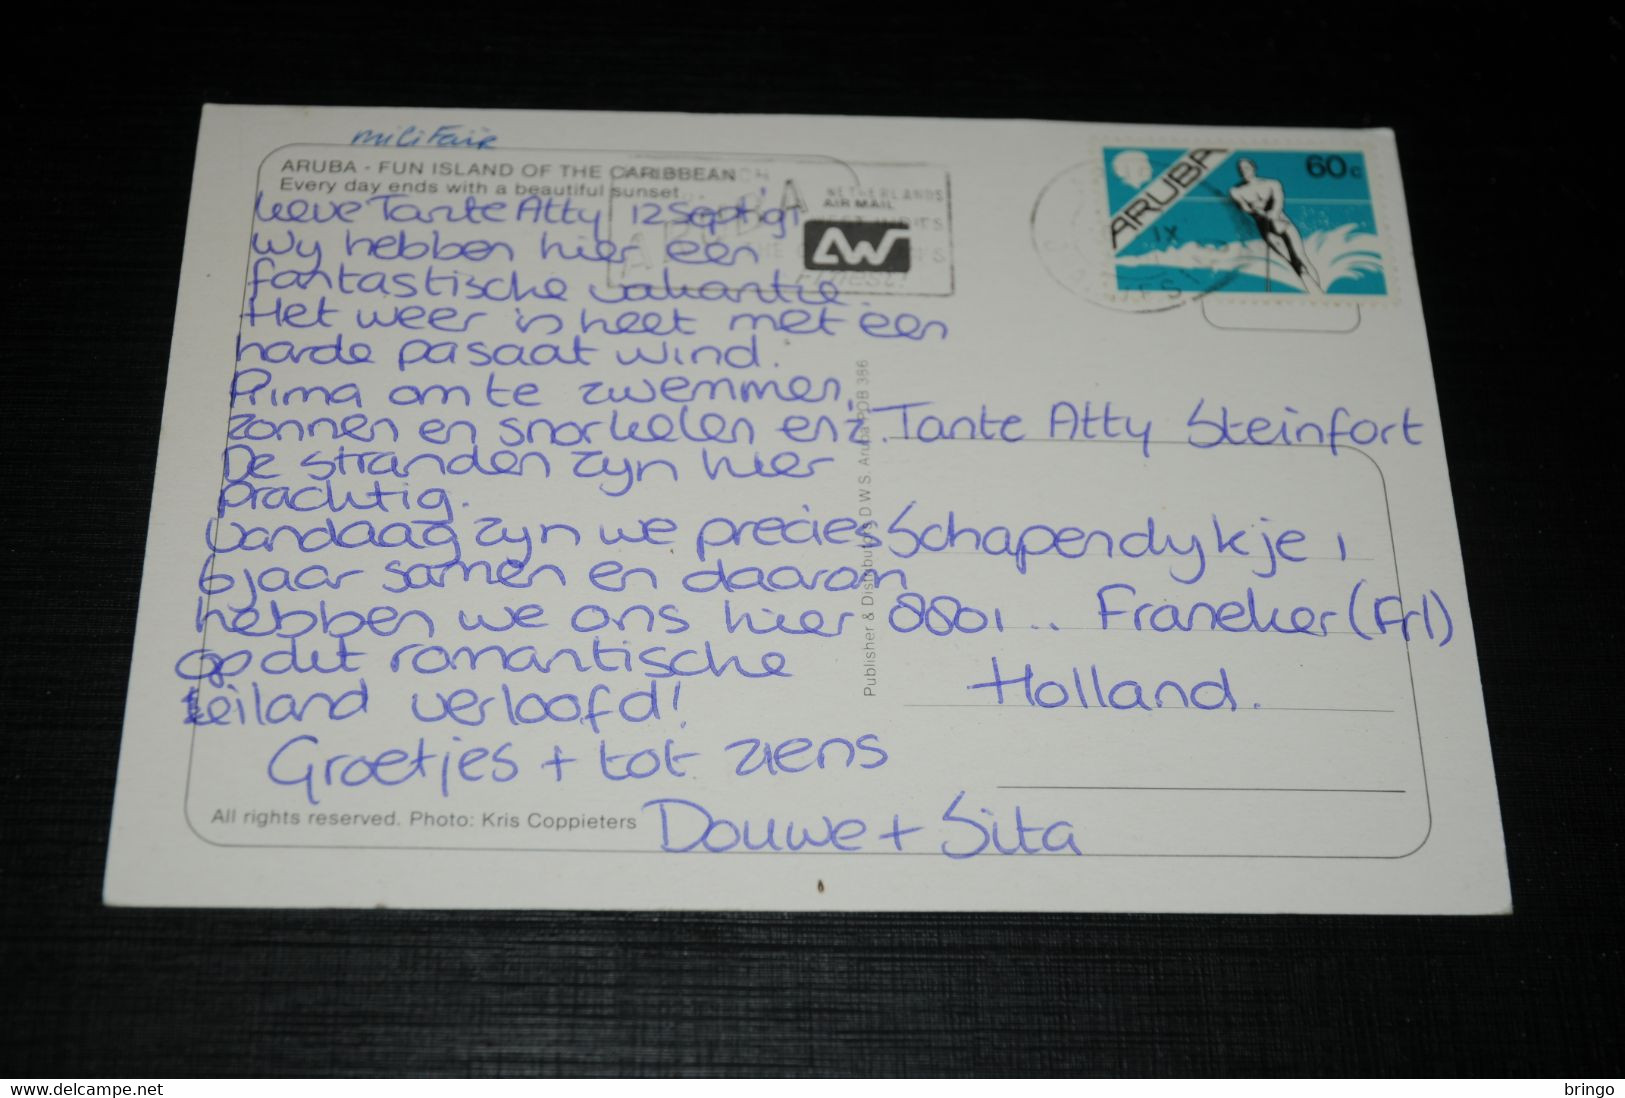 miliFair
ARUBA - FUN ISLAND OF THE CARIBBEAN
Every day ends with a beautiful sunset
Lieve Tante Atty 12 Sept '91
Wy hebben hier een
fantastische vakantie.
Het weer is heet met een
harde pasaat wind.
Prima om te zwemmen,
zonnen en snorkelen enz.
De stranden zyn hier
prachtig.
Vandaag zyn we precies
6 jaar samen en daarom
hebben we ons hier
op dit romantische
eiland verloofd!
Groetjes + tot ziens
Douwe + Sita
All rights reserved. Photo: Kris Coppieters
Publisher & Distributors D.W.S. Aruba POB 386
NETHERLANDS
AIR MAIL
AW
ARUBA
ARUBA
60c
IX
Tante Atty Steinfort
Schapendykje 1
8801 .. Franeker (Frl)
Holland.
delcampe.net
bringo